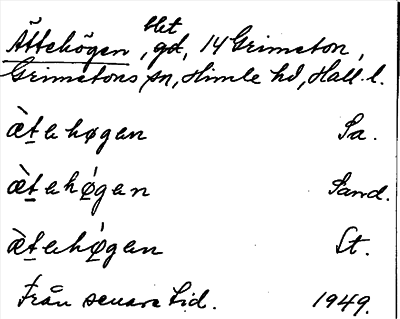 Ättehögen, het gd, 14 Grimeton,
Grimetons sn, Himle hd, Hall. l.
æ̀t̠ehøgen Sa.
æ̀t̠ehǿ̠gen Sand.
æ̀t̠ehǿ̠gen St.
Från senare tid. 1949.